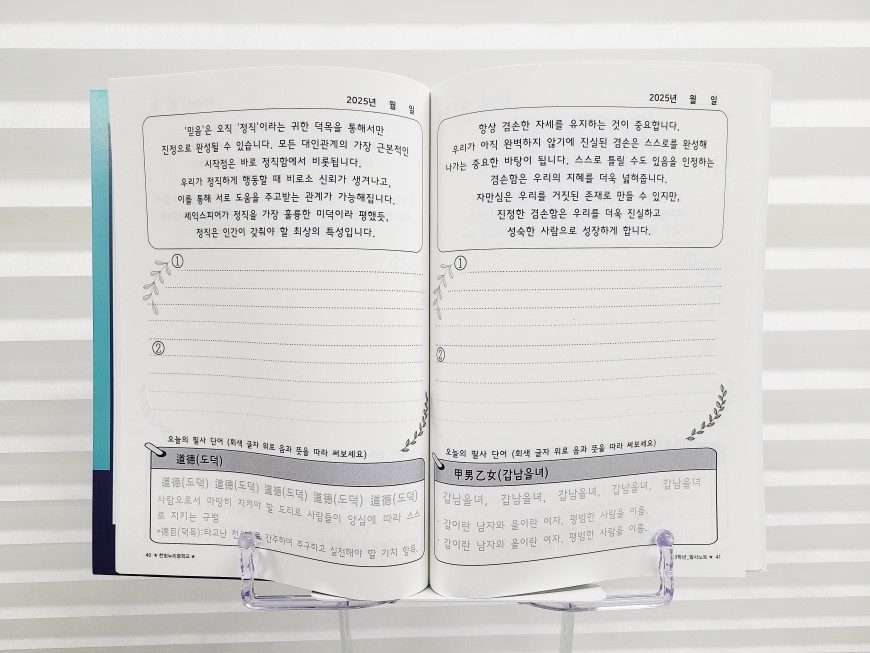 2025년 월 일
'믿음'은 오직 '정직'이라는 귀한 덕목을 통해서만
진정으로 완성될 수 있습니다. 모든 대인관계의 가장 근본적인
시작점은 바로 정직함에서 비롯됩니다.
우리가 정직하게 행동할 때 비로소 신뢰가 생겨나고,
이를 통해 서로 도움을 주고받는 관계가 가능해집니다.
셰익스피어가 정직을 가장 훌륭한 미덕이라 평했듯,
정직은 인간이 갖춰야 할 최상의 특성입니다.
①
②
오늘의 필사 단어 (회색 글자 위로 음과 뜻을 따라 써보세요)
道德(도덕)
道德(도덕) 道德(도덕) 道德(도덕) 道德(도덕) 道德(도덕)
사람으로서 마땅히 지켜야 할 도리로 사람들이 양심에 따라 스스
로 지키는 규범
*德目(덕목):타고난 간주하여 추구하고 실천해야 할 가치 항목.
40 ★ 한빛누리중학교 ★
2025년 월 일
항상 겸손한 자세를 유지하는 것이 중요합니다.
우리가 아직 완벽하지 않기에 진실된 겸손은 스스로를 완성해
나가는 중요한 바탕이 됩니다. 스스로 틀릴 수도 있음을 인정하는
겸손함은 우리의 지혜를 더욱 넓혀줍니다.
자만심은 우리를 거짓된 존재로 만들 수 있지만,
진정한 겸손함은 우리를 더욱 진실하고
성숙한 사람으로 성장하게 합니다.
①
②
오늘의 필사 단어 (회색 글자 위로 음과 뜻을 따라 써보세요)
甲男乙女(갑남을녀)
갑남을녀, 갑남을녀, 갑남을녀, 갑남을녀, 갑남을녀
: 갑이란 남자와 을이란 여자, 평범한 사람을 이름.
: 갑이란 남자와 을이란 여자, 평범한 사람을 이름.
3학년_필사노트 ★ 41